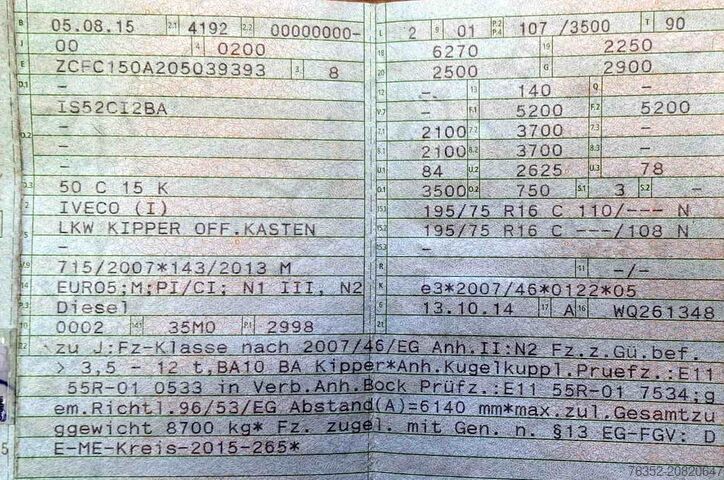 B 05.08.15 2.1 4192 2.2 00000000-
J 00 4 0200
E ZCFC150A205039393 3 8
D.1 -
IS52CI2BA
D.2 -
-
-
D.3 50 C 15 K
2 IVECO (I)
5 LKW KIPPER OFF.KASTEN
-
V.9 715/2007*143/2013 M
14 EURO5;M;PI/CI; N1 III, N2
P.3 Diesel
10 0002 14.1 35M0 P.1 2998
L 2 9 01 P.2 P.4 107 /3500 T 90
18 6270 19 2250
20 2500 G 2900
12 - 13 140 Q -
V.7 - F.1 5200 F.2 5200
7.1 2100 7.2 3700 7.3 -
8.1 2100 8.2 3700 8.3 -
U.1 84 U.2 2625 U.3 78
O.1 3500 O.2 750 S.1 3 S.2 -
15.1 195/75 R16 C 110/--- N
15.2 195/75 R16 C ---/108 N
15.3 -
R 11 -/-
K e3*2007/46*0122*05
6 13.10.14 17 A 16 WQ261348
21
22 zu J:Fz-Klasse nach 2007/46/EG Anh.II:N2 Fz.z.Gü.bef.
> 3,5 - 12 t,BA10 BA Kipper*Anh.Kugelkuppl.Pruefz.:E11
55R-01 0533 in Verb.Anh.Bock Prüfz.:E11 55R-01 7534;g
em.Richtl.96/53/EG Abstand(A)=6140 mm*max.zul.Gesamtzu
ggewicht 8700 kg* Fz. zugel. mit Gen. n. §13 EG-FGV: D
E-ME-Kreis-2015-265*
76352-20820647